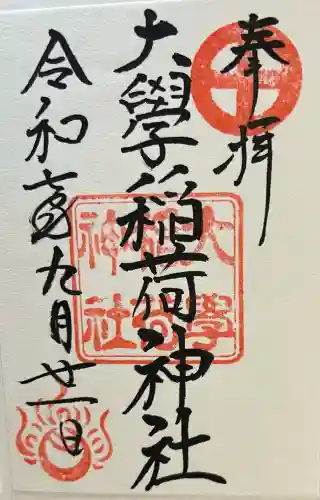 奉拝
大學稲荷神社
大學稲荷神社
令和六年九月廿一日